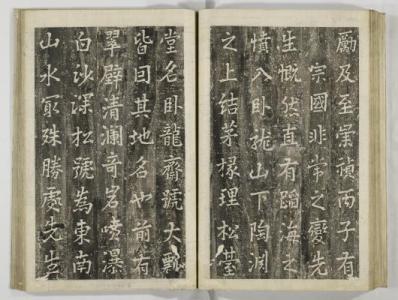 勵及至崇禎丙子有
宗國非常之變先
生慨然直有蹈海之
憤入卧龍山下陶淵
之上結茅椽埋松
堂名卧龍齋號大瓢
皆因其地名也前有
翠壁清瀾奇岩噴瀑
白沙深松號為東南
山水冣殊勝處先生